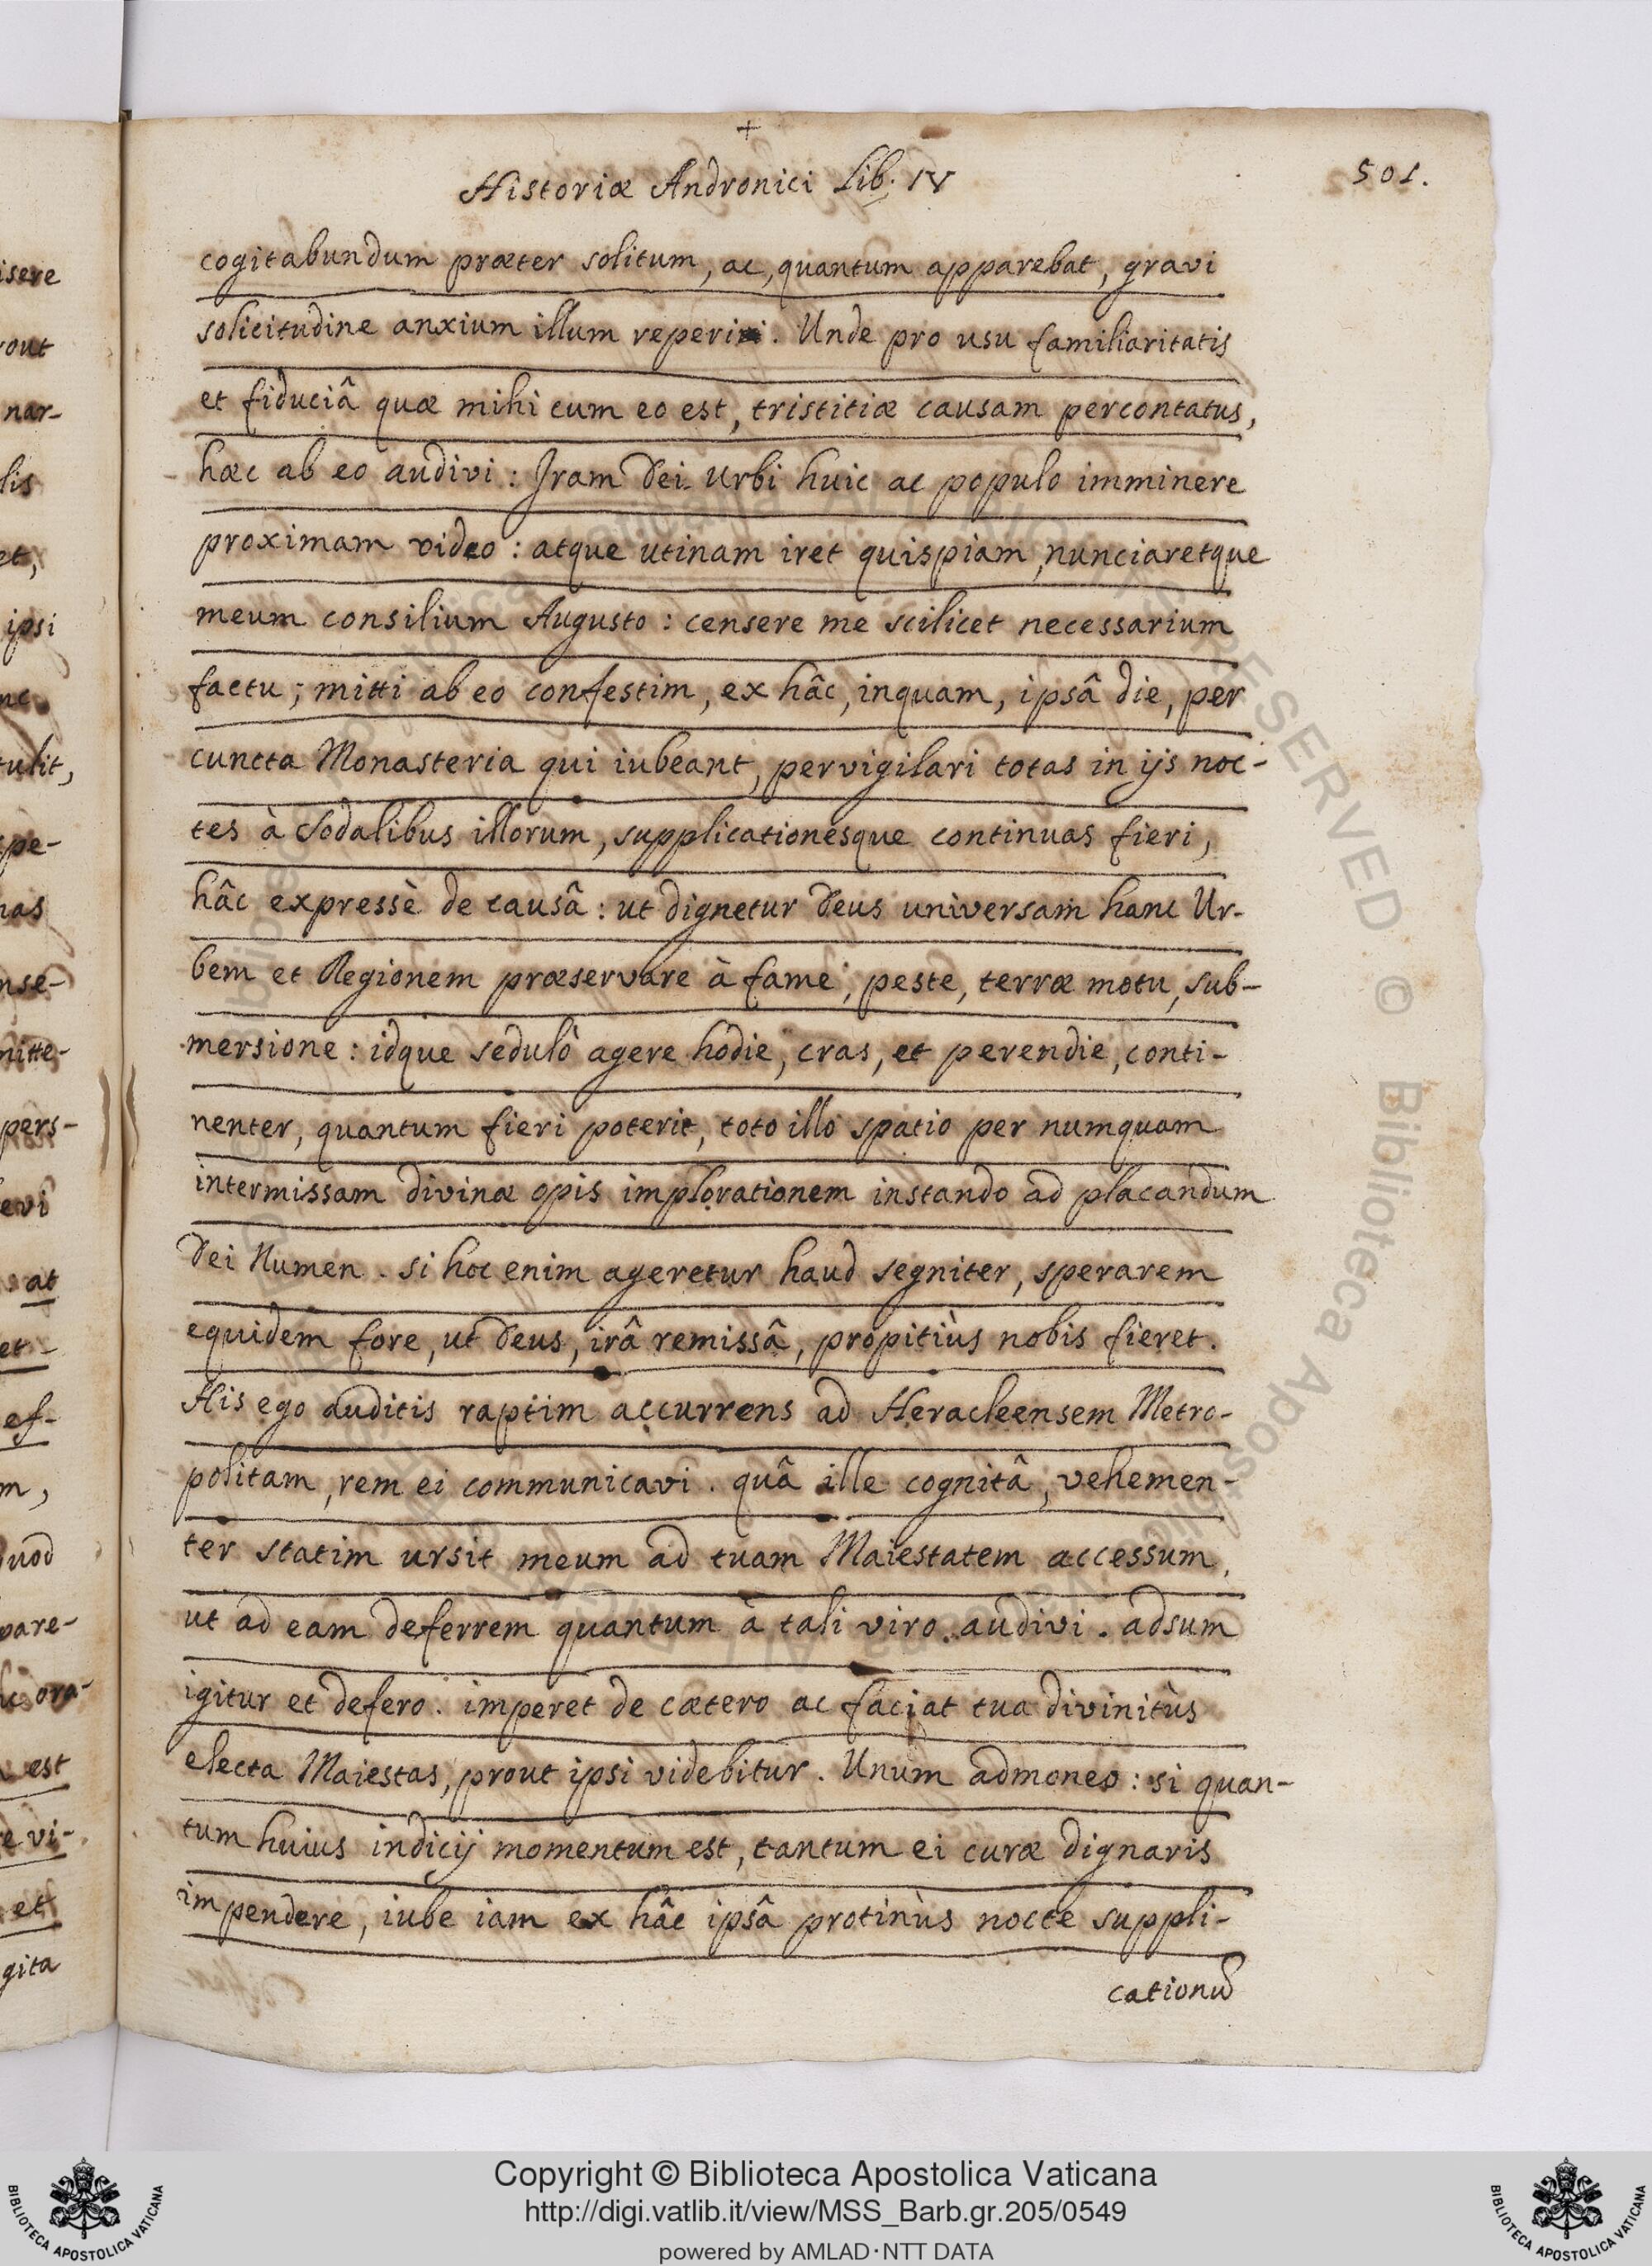 +
Historiæ Andronici Lib. IV
501.
cogitabundum præter solitum, ac, quantum apparebat, gravi
solicitudine anxium illum reperi. Unde pro usu familiaritatis
et fiduciâ quæ mihi cum eo est, tristitiæ causam percontatus,
hæc ab eo audivi: Iram Dei Urbi huic ac populo imminere
proximam video: atque utinam iret quispiam, nunciaretque
meum consilium Augusto: censere me scilicet necessarium
factu; mitti ab eo confestim, ex hâc, inquam, ipsâ die, per
cuncta Monasteria qui iubeant, pervigilari totas in ijs noc-
tes à Sodalibus illorum, supplicationesque continuas fieri,
hâc expressè de causâ: ut dignetur Deus universam hanc Ur-
bem et Regionem præservare à fame, peste, terræ motu, sub-
mersione: idque sedulò agere hodie, cras, et perendie, conti-
nenter, quantum fieri poterit, toto illo spatio per numquam
intermissam divinæ opis implorationem instando ad placandum
Dei Numen. si hoc enim ageretur haud segniter, sperarem
equidem fore, ut Deus, irâ remissâ, propitiùs nobis fieret.
His ego auditis raptim accurrens ad Heracleensem Metro-
politam, rem ei communicavi. quâ ille cognitâ, vehemen-
ter statim ursit meum ad tuam Maiestatem accessum,
ut ad eam deferrem quantum à tali viro audivi. adsum
igitur et defero. imperet de cætero ac faciat tua divinitùs
electa Maiestas, prout ipsi videbitur. Unum admoneo: si quan-
tum huius indicij momentum est, tantum ei curæ dignaris
impendere, iube iam ex hâc ipsâ protinùs nocte suppli-
cationū
isere
rout
nar-
lis
et,
ipsi
tulit,
spe-
nas
nse-
mitte-
pers-
evi
at
et
ef-
m,
uod
pare-
ora-
est
e vi-
et
gita
Copyright © Biblioteca Apostolica Vaticana
http://digi.vatlib.it/view/MSS_Barb.gr.205/0549
powered by AMLAD·NTT DATA
BIBLIOTECA APOSTOLICA VATICANA
BIBLIOTECA APOSTOLICA VATICANA